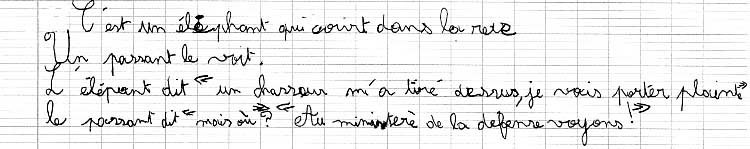 C'est un éléphant qui court dans la rue
Un passant le voit.
L'élépant dit « un chasseur m'a tiré dessus, je vais porter plainte »
le passant dit « mais où ? » « Au ministère de la defense voyons ! »